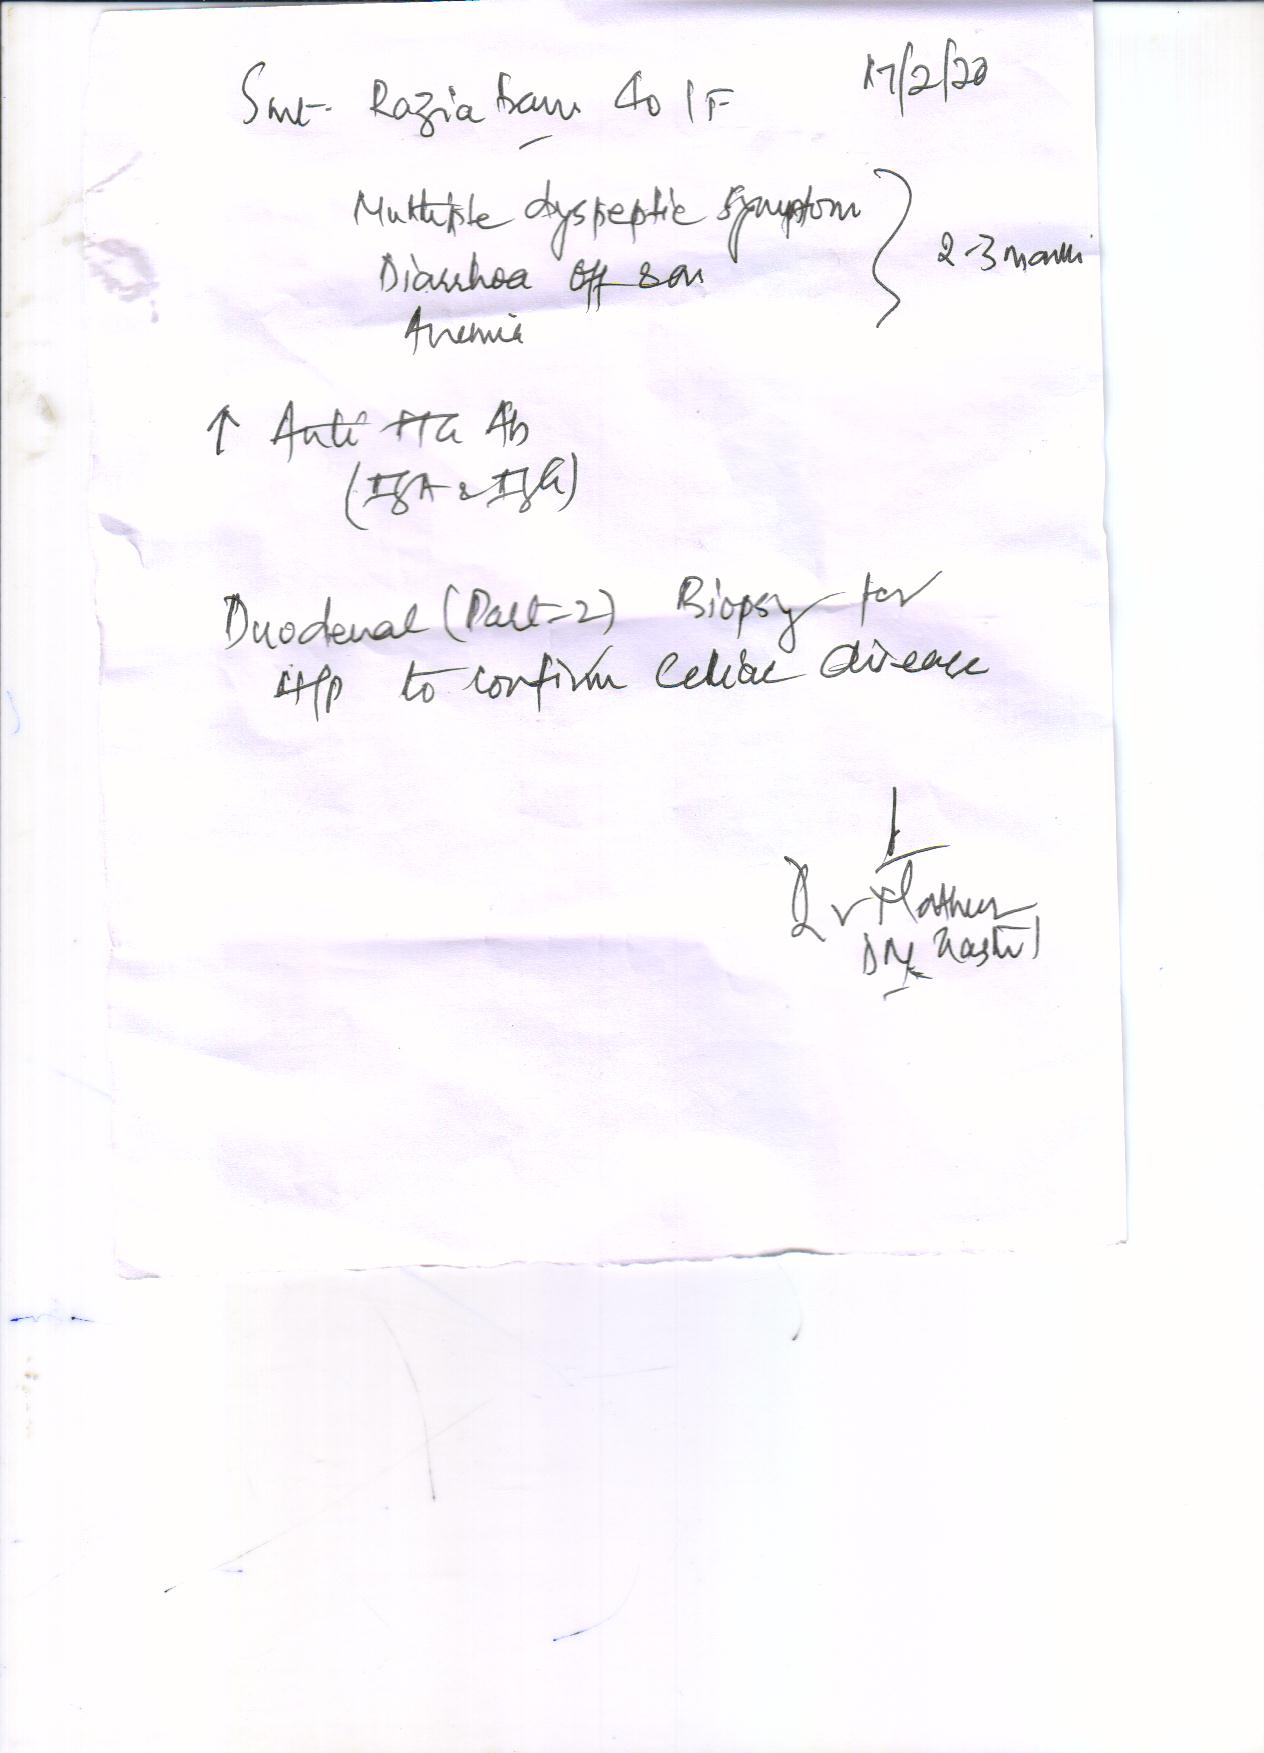 Smt. Razia Banu 40 / F 17/2/20
Multiple dyspeptic symptom
Diarrhoea off & on
Anemia
2-3 month
↑ Anti tTG Ab
(IgA & IgG)
Duodenal (Part-2) Biopsy for
H/p to confirm Celiac disease
Dr Mathur
DM Gastro